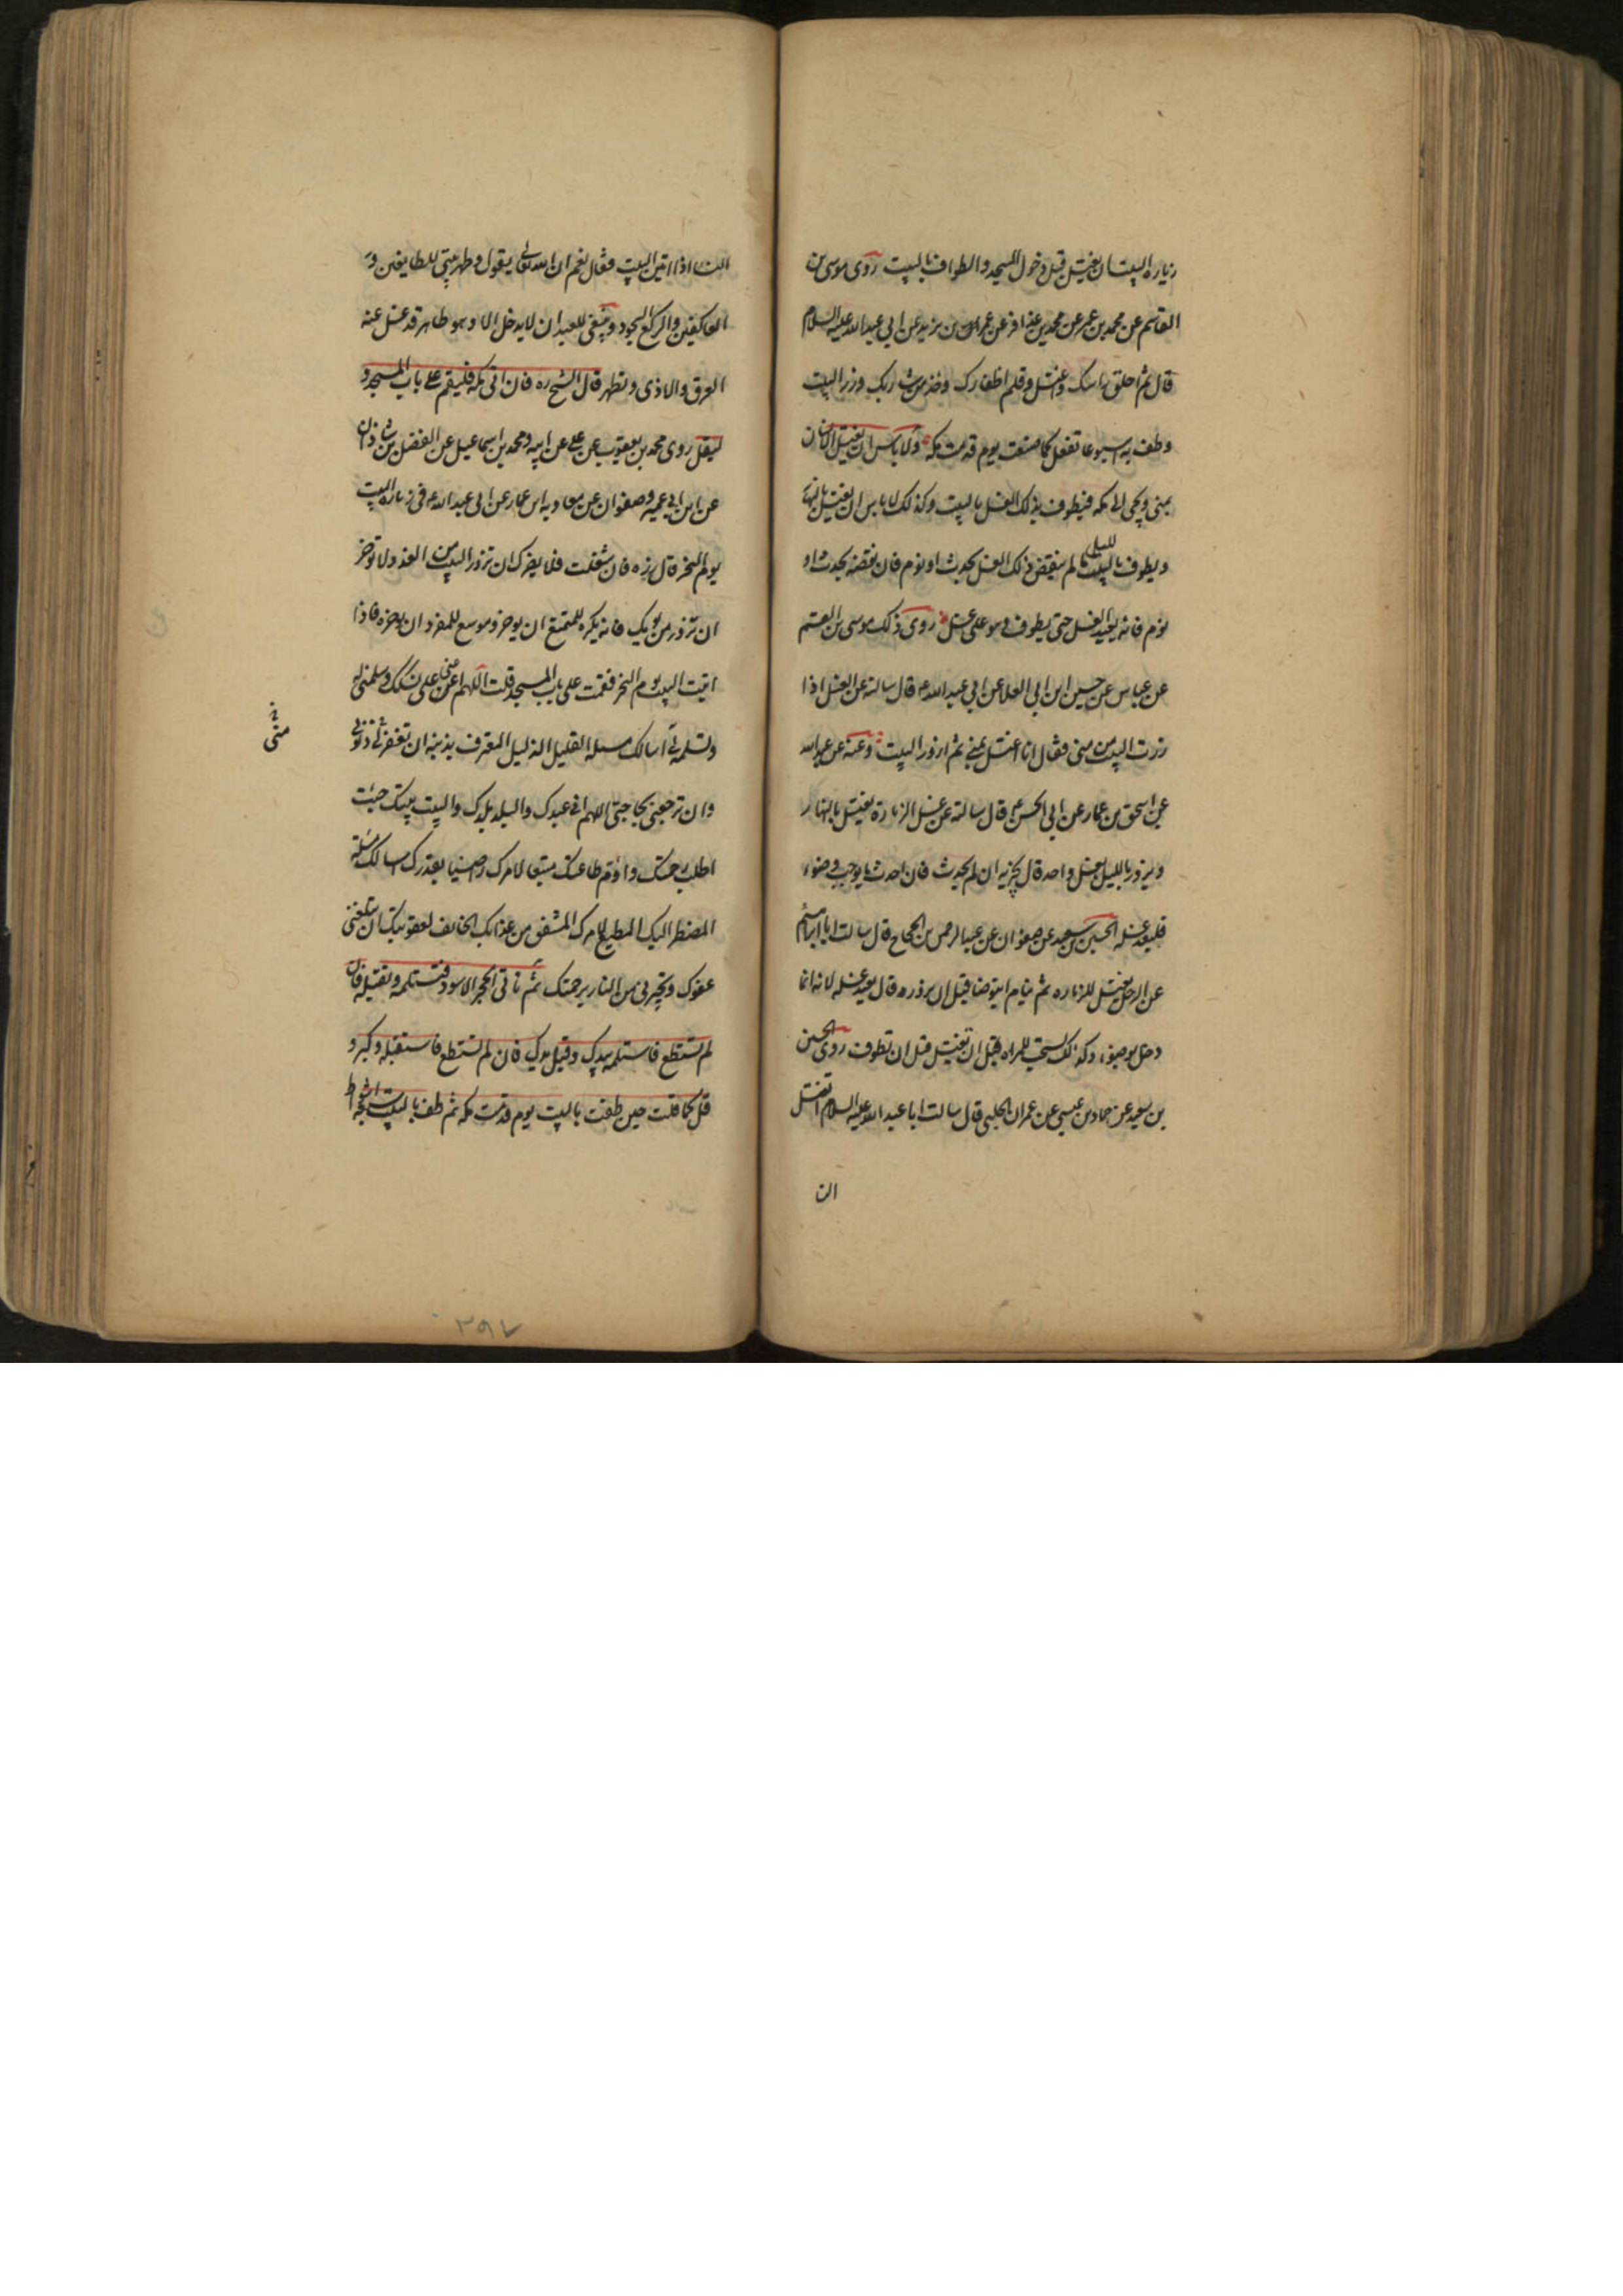 زيارة البيت ان يغتسل قبل دخول المسجد والطواف بالبيت روى موسى بن
القاسم عن محمد بن عمر عن محمد بن عذافر عن عمر بن يزيد عن ابي عبد الله عليه السلام
قال ثم احلق راسك واغتسل وقلم اظفارك وخذ من شاربك وزر البيت
وطف به اسبوعا تفعل كما صنعت يوم قدمت مكة ولا باس ان يغتسل الانسان
بمنى ويجى الى مكه فيطوف بذلك الغسل بالبيت وكذلك لا باس ان يغتسل بالنهار
ويطوف بالبيت بالليل ما لم ينقض ذلك الغسل بحدث او نوم فان نقضه بحدث او
نوم فانه يعيد الغسل حتى يطوف وهو على غسل روى ذلك موسى بن القسم
عن عباس عن حسين ابن ابي العلا عن ابي عبد الله ع قال سالته عن الغسل اذا
زرت البيت من منى فقال انا اغتسل بمنى ثم ازور البيت وعنه عن عبد الله
عن اسحق بن عمار عن ابي الحسن ع قال سالته عن غسل الزيارة يغتسل بالنهار
ويزور بالليل بغسل واحد قال يجزيه ان لم يحدث فان احدث ما يوجب وضوء
فليعد غسله الحسين بن سعيد عن صفوان عن عبد الرحمن بن الحجاج قال سالت ابا ابراهيم
عن الرجل يغتسل للزياره ثم ينام ايتوضا قبل ان يزوره قال يعيد غسله لانه انما
دخل بوضوء وكذلك يستحب للمراه قبل ان تغتسل قبل ان تطوف روى الحسين
بن سعيد عن حماد بن عيسى عن عمران الحلبى قال سالت ابا عبد الله عليه السلام اتغتسل
الن
النساء اذا اتين البيت فقال نعم ان الله تعالى يقول وطهر بيتي للطايفين و
العاكفين والركع السجود وينبغي للعبد ان لا يدخل الا وهو طاهر قد غسل عنه
العرق والاذى وتطهر قال الشيخ ره فان اتى مكه فليقم على باب المسجد و
ليقل روى محمد بن يعقوب عن على عن ابيه ومحمد بن اسماعيل عن الفضل بن شاذان
عن ابن ابي عمير وصفوان عن معاويه بن عمار عن ابى عبد الله ع فى زياره البيت
يوم النحر قال زره فان شغلت فلا يضرك ان تزور البيت من الغد ولا توخر
ان تزور من يومك فانه يكره للمتمتع ان يوخر وموسع للمفرد ان يوخره فاذا
اتيت البيت يوم النحر فقمت على باب المسجد قلت اللهم اعنى على نسكك وسلمنى له
وتسلمه لى اسالك مسله القليل الذليل المعترف بذنبه ان تغفر لى ذنوبى
منى
وان ترجعنى بحاجتى اللهم انى عبدك والبلد بلدك والبيت بيتك جئت
اطلب رحمتك واؤم طاعتك متبعا لامرك راضيا بقدرك اسالك مسئلة
المضطر اليك المطيع لامرك المشفق من عذابك الخايف لعقوبتك ان تبلغنى
عفوك وتجيرنى من النار برحمتك ثم تاتى الحجر الاسود فتستلمه وتقبله فان
لم تستطع فاستلمه بيدك وقبل يدك فان لم تستطع فاستقبله وكبر و
قل كما قلت حين طفت بالبيت يوم قدمت مكه ثم طف بالبيت سبعة اشواط
٢٩٧